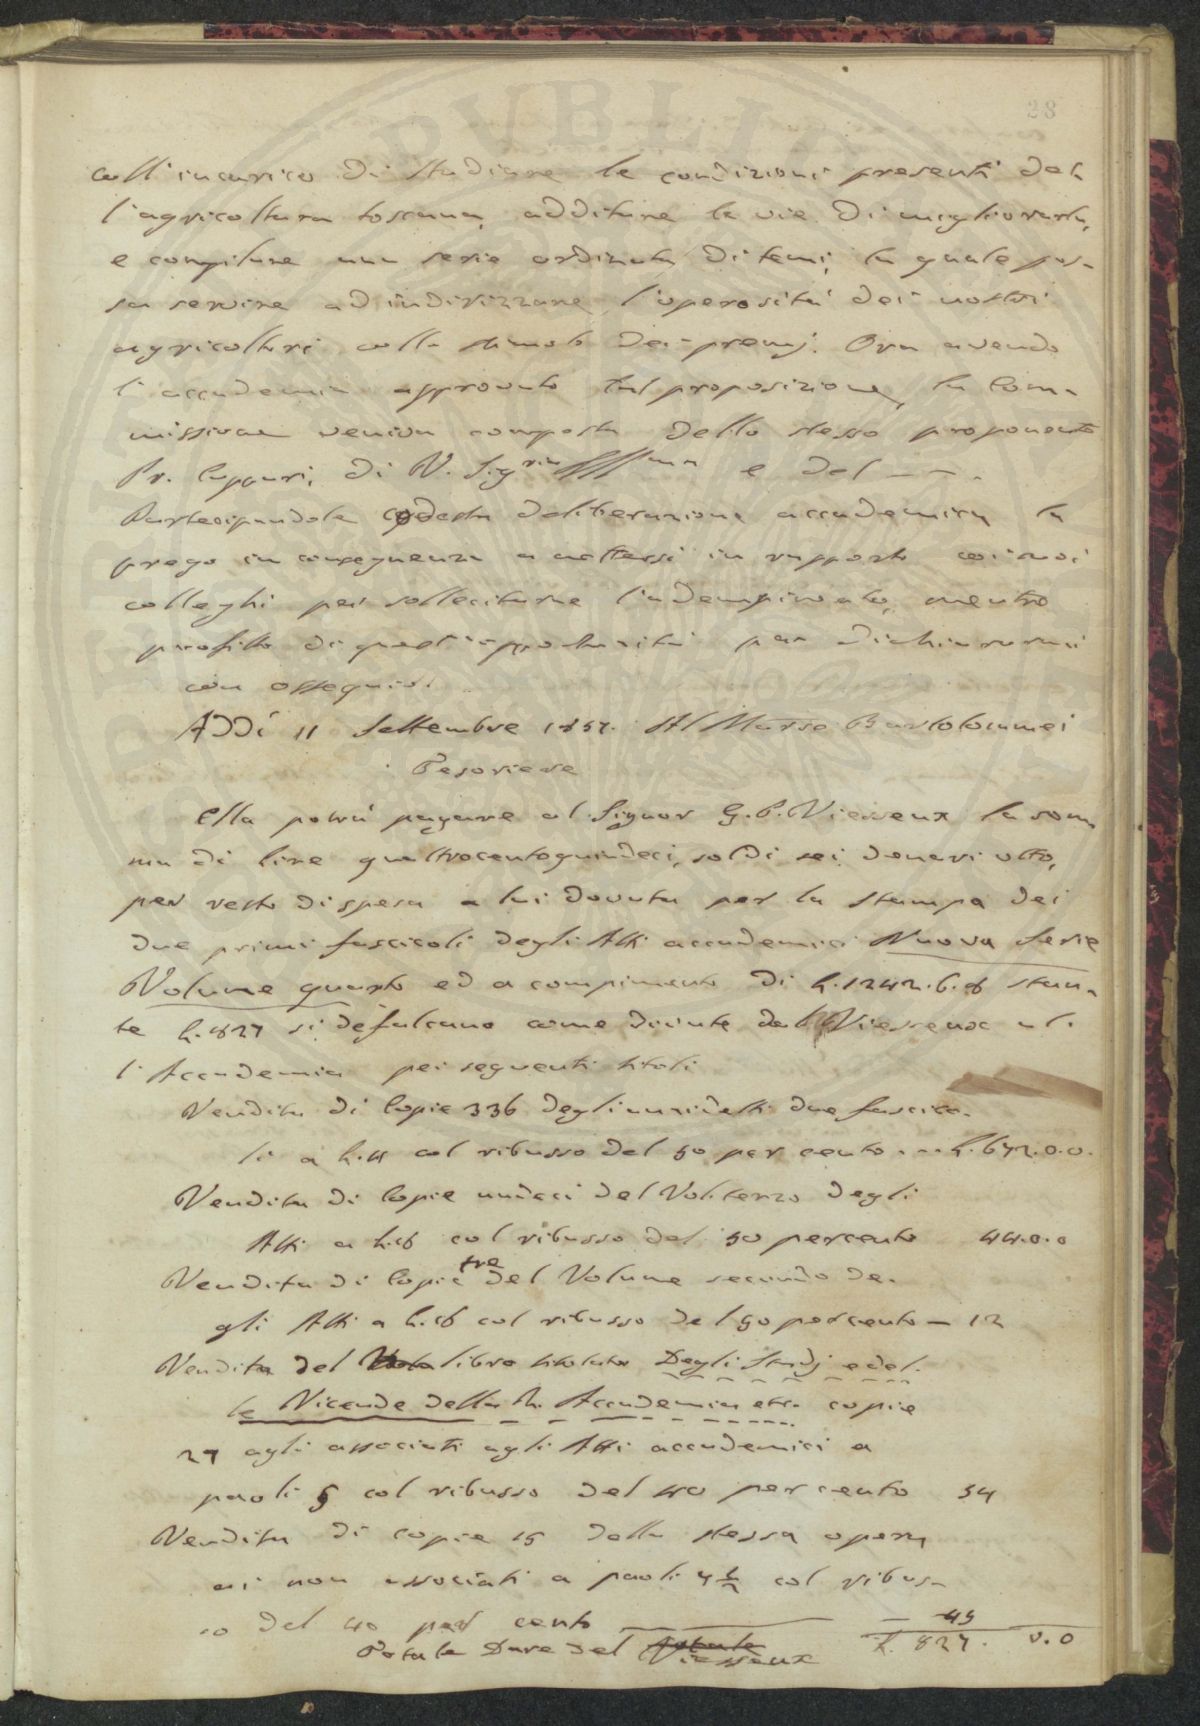 28
coll'incarico di studiare le condizioni presenti del-
l'agricoltura toscana, additare le vie di migliorarla,
e compilare una serie ordinata di temi, la quale pos-
sa servire ad indirizzare l'operosità dei nostri
agricoltori collo stimolo dei premj. Ora avendo
l'accademia approvato tal proposizione, la Com-
missione veniva composta dello stesso proponente
Pr. Cuppari, di V. Sig.ria e del —.
Partecipandole codesta deliberazione accademica la
prego in conseguenza a mettersi in rapporto coi suoi
colleghi per sollecitarne l'adempimento, mentre
profitto di quest'opportunità per dichiararmi
con ossequio.
Addì 11 Settembre 1857. Al March.se Bartolommei
Tesoriere
Ella potrà pagare al Signor G. P. Vieusseux la som-
ma di lire quattrocentoquindeci, soldi sei, denari otto,
per resto di spesa a lui dovuta per la stampa dei
due primi fascicoli degli Atti accademici Nuova Serie
Volume quarto ed a compimento di L. 1242.6.8 stan-
te L. 827 si defalcano come dovute dal Vieusseux al-
l'Accademia pei seguenti titoli
Vendita di Copie 336 degli anzidetti due fascico-
li a L. 4 col ribasso del 50 per cento ... L. 672.0.0.
Vendita di Copie undeci del Vol. terzo degli
Atti a L. 8 col ribasso del 50 per cento 44.0.0
Vendita di Copie tre del Volume secondo de-
gli Atti a L. 8 col ribasso del 50 per cento — 12
Vendita del libro titolato Degli Studj e del-
le Vicende della R. Accademia etc. copie
27 agli associati agli Atti accademici a
paoli 5 col ribasso del 40 per cento 54
Vendita di copie 15 della stessa opera
ai non associati a paoli 7 1/2 col ribas-
so del 40 per cento — 45
Totale Dare del Vieusseux L. 827. 0.0